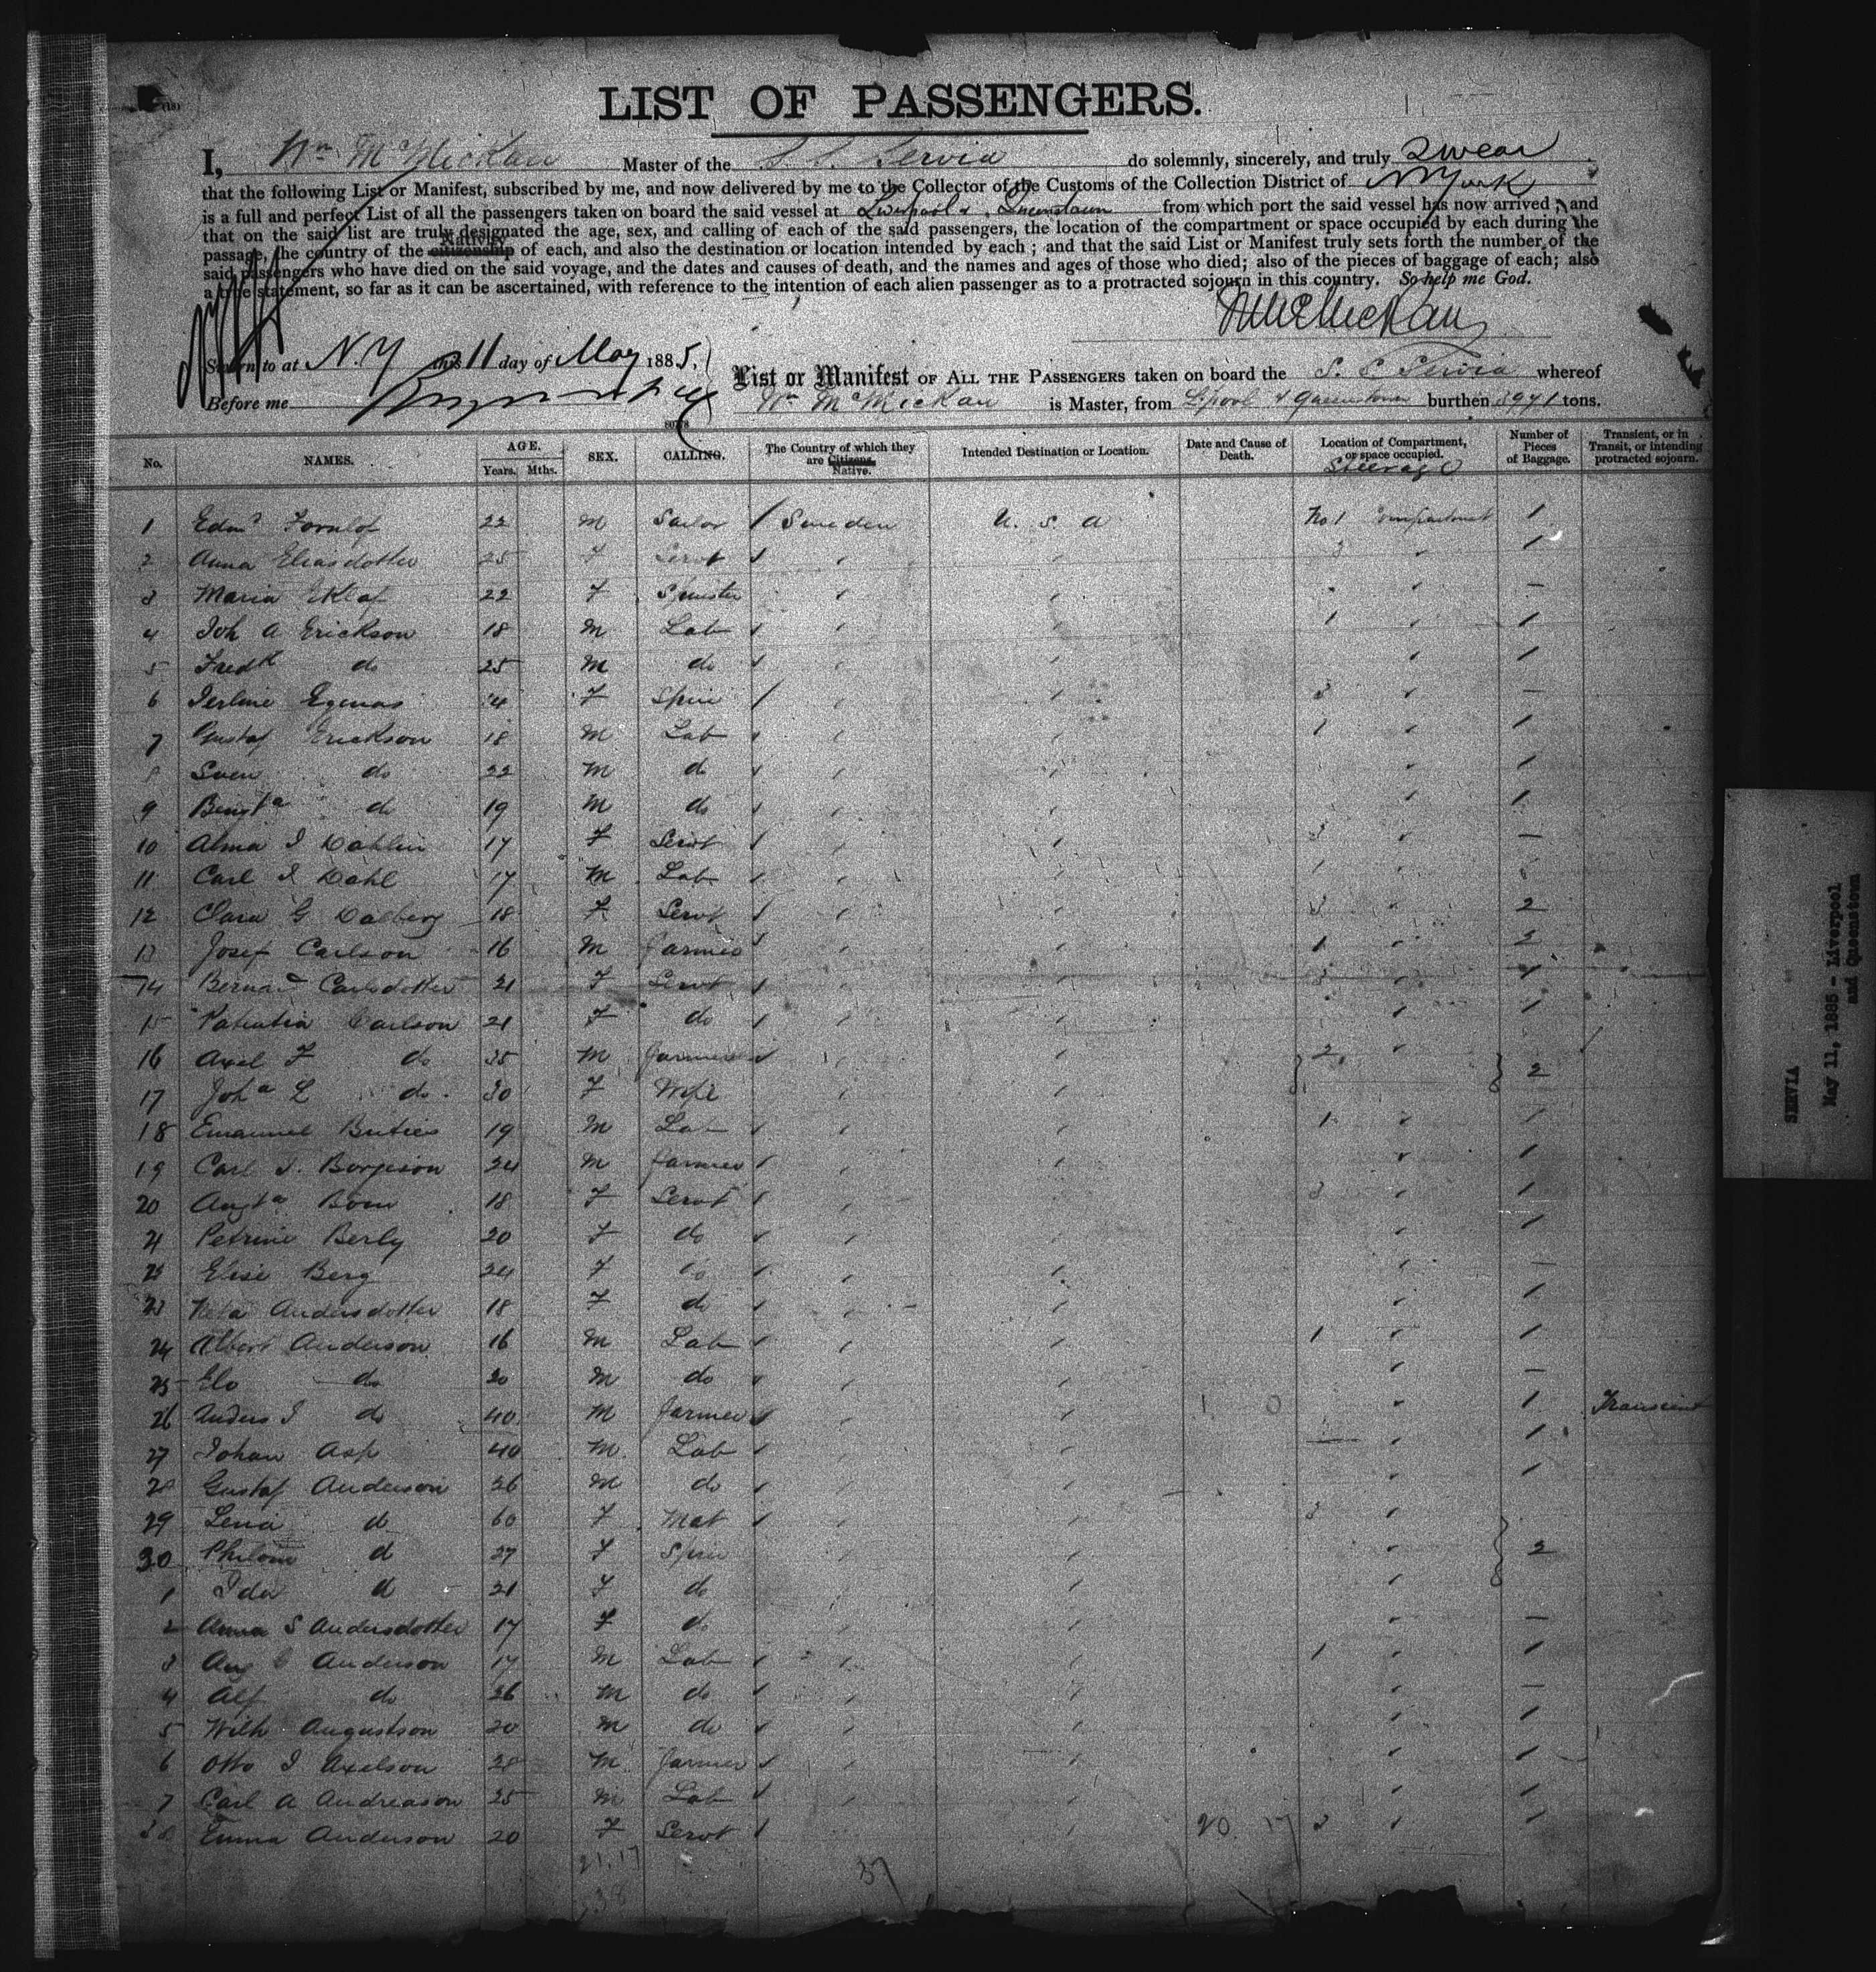 LIST OF PASSENGERS.
I, Wm McMickan Master of the S. S. Servia do solemnly, sincerely, and truly Swear
that the following List or Manifest, subscribed by me, and now delivered by me to the Collector of the Customs of the Collection District of N York
is a full and perfect List of all the passengers taken on board the said vessel at Liverpool & Queenstown from which port the said vessel has now arrived; and
that on the said list are truly designated the age, sex, and calling of each of the said passengers, the location of the compartment or space occupied by each during the
passage, the country of the citizenship Nativity of each, and also the destination or location intended by each; and that the said List or Manifest truly sets forth the number of the
said passengers who have died on the said voyage, and the dates and causes of death, and the names and ages of those who died; also of the pieces of baggage of each; also
a true statement, so far as it can be ascertained, with reference to the intention of each alien passenger as to a protracted sojourn in this country. So help me God.
WMcMickan
Sworn to at N.Y this 11 day of May 1885,
Before me
List or Manifest OF ALL THE PASSENGERS taken on board the S. S. Servia whereof
Wm McMickan is Master, from L'pool & Queenstown burthen 3971 tons.
No. NAMES. AGE. Years. Mths. SEX. CALLING. The Country of which they are Citizens. Native. Intended Destination or Location. Date and Cause of Death. Location of Compartment, or space occupied. Steerage Number of Pieces of Baggage. Transient, or in Transit, or intending protracted sojourn.
1 Edmd Fornlof 22 M Sailor / Sweden U. S. A No 1 Compartment 1
2 Anna Eliasdotter 25 F Servt 3 1
3 Maria Eklof 22 F Spinster —
4 Joh A Erickson 18 M Lab 1 1
5 Fredk do 25 M do 1
6 Egenas 14 F Spin 3 —
7 Gustaf Erickson 18 M Lab 1 1
8 Sven do 22 M do 1
9 Bengta do 19 M do 1
10 Alma I Dahlin 17 F Servt 3 —
11 Carl I Dahl 17 M Lab 1
12 Clara G Dalberg 18 F Servt 3 2
13 Josef Carlson 16 M farmer 1 2
14 Bernad Carlsdotter 21 F Servt 3 1
15 Carlson 21 F do 1
16 Axel F do 35 M farmer 2
17 Joha L do 30 F Wife 2
18 Emanuel 19 M Lab 1 1
19 Carl I. Borjeson 24 M farmer 1
20 Augta Bom 18 F Servt 3 1
21 Petrine Berly 20 F do 1
22 Elise Berg 24 F do —
23 Andersdotter 18 F do 1
24 Albert Anderson 16 M Lab 1 1
25 Elo do 20 M do —
26 Anders I do 40 M farmer 1 0 1 Transient
27 Johan Asp 40 M Lab 1
28 Gustaf Anderson 26 M do 1
29 Lena d 60 F Mat 3
30 Philom d 27 F Spin 2
1 Ida d 21 F do
2 Anna S Andersdotter 17 F do —
3 Aug C Anderson 17 M Lab 1 1
4 Alf do 26 M do —
5 Wilh Augustson 20 M do 1
6 Otto I Axelson 28 M farmer 1
7 Carl A Andreason 25 M Lab 1
38 Emma Anderson 20 F Servt 20 17 3 1
21.17
38
37
SERVIA
May 11, 1885 - Liverpool
and Queenstown